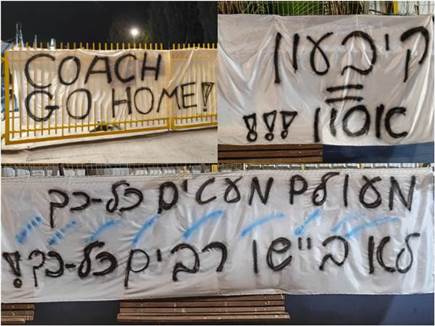 COACH
GO HOME!
קיבעון
=
אסון !!!
מעולם מעטים כל-כך
לא ביישו רבים כל-כך!!